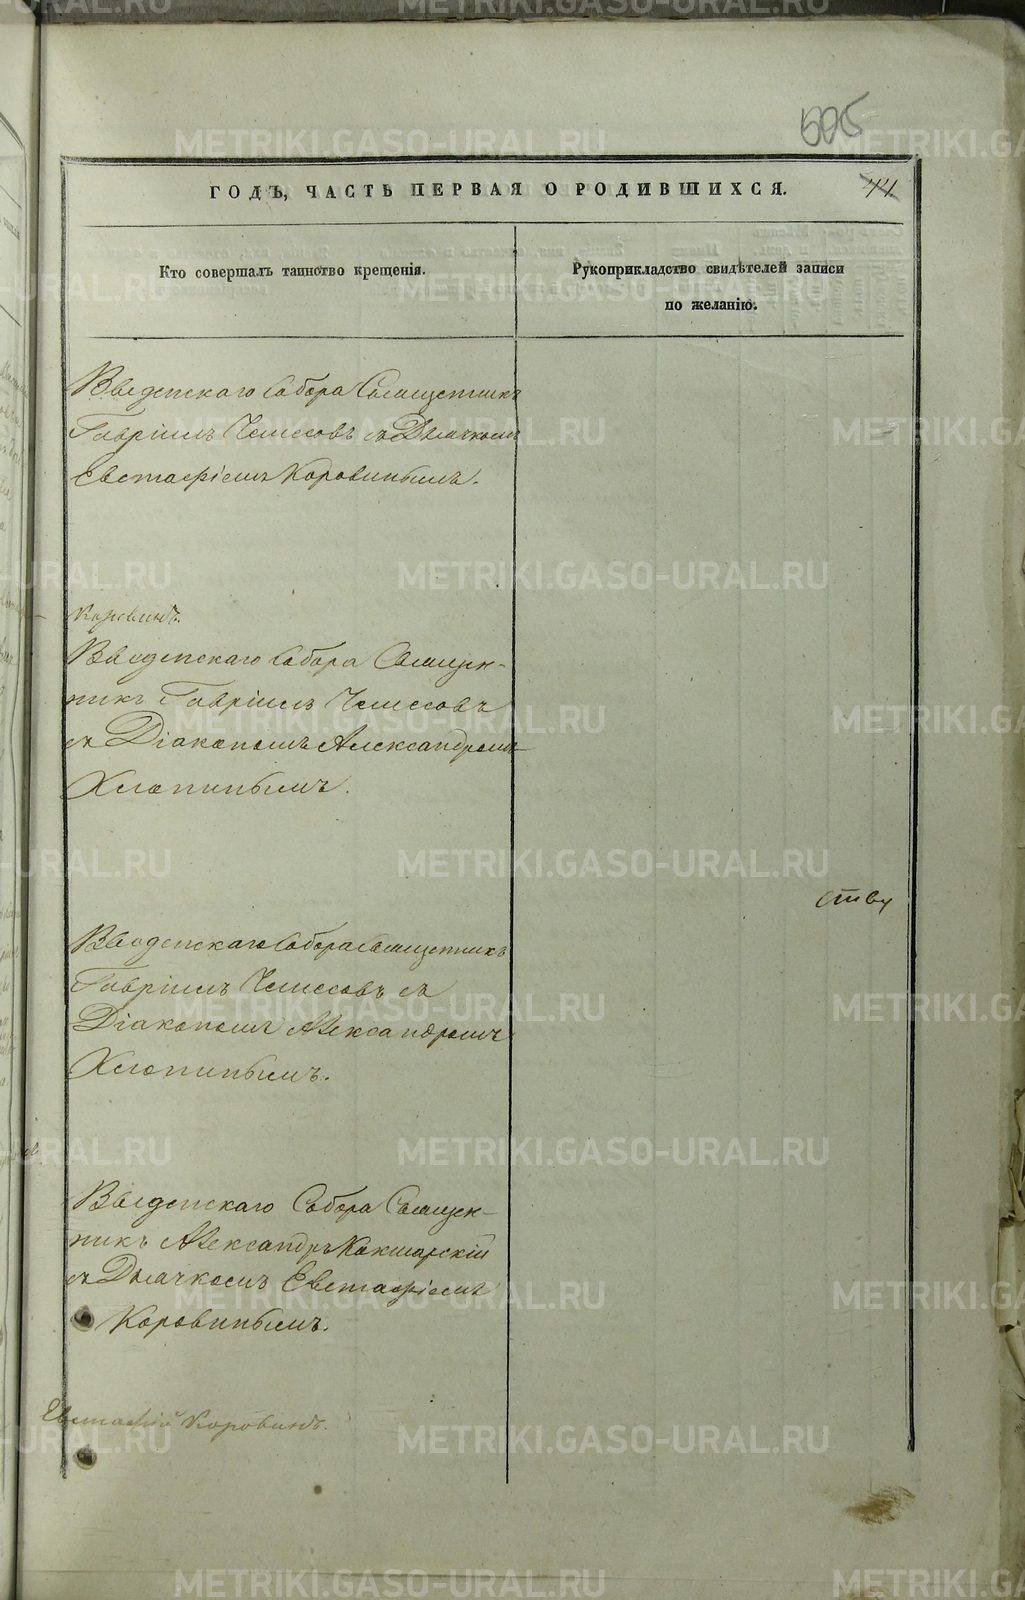 505
ГОДЪ, ЧАСТЬ ПЕРВАЯ О РОДИВШИХСЯ.
44
Кто совершалъ таинство крещенія.
Рукоприкладство свидѣтелей записи
по желанію.
Введенскаго Собора Священникъ
Гавріилъ Чемесовъ съ Дьячкомъ
Евстафіемъ Коровинымъ.
Коровинъ.
Введенскаго Собора Священ-
никъ Гавріилъ Чемесовъ
съ Діакономъ Александромъ
Хлопинымъ.
ству
Введенскаго Собора Священникъ
Гавріилъ Чемесовъ съ
Діакономъ Александромъ
Хлопинымъ.
Введенскаго Собора Священ-
никъ Александръ Кокшарскій
съ Дьячкомъ Евстафіемъ
Коровинымъ.
Евстафій Коровинъ.
METRIKI.GASO-URAL.RU